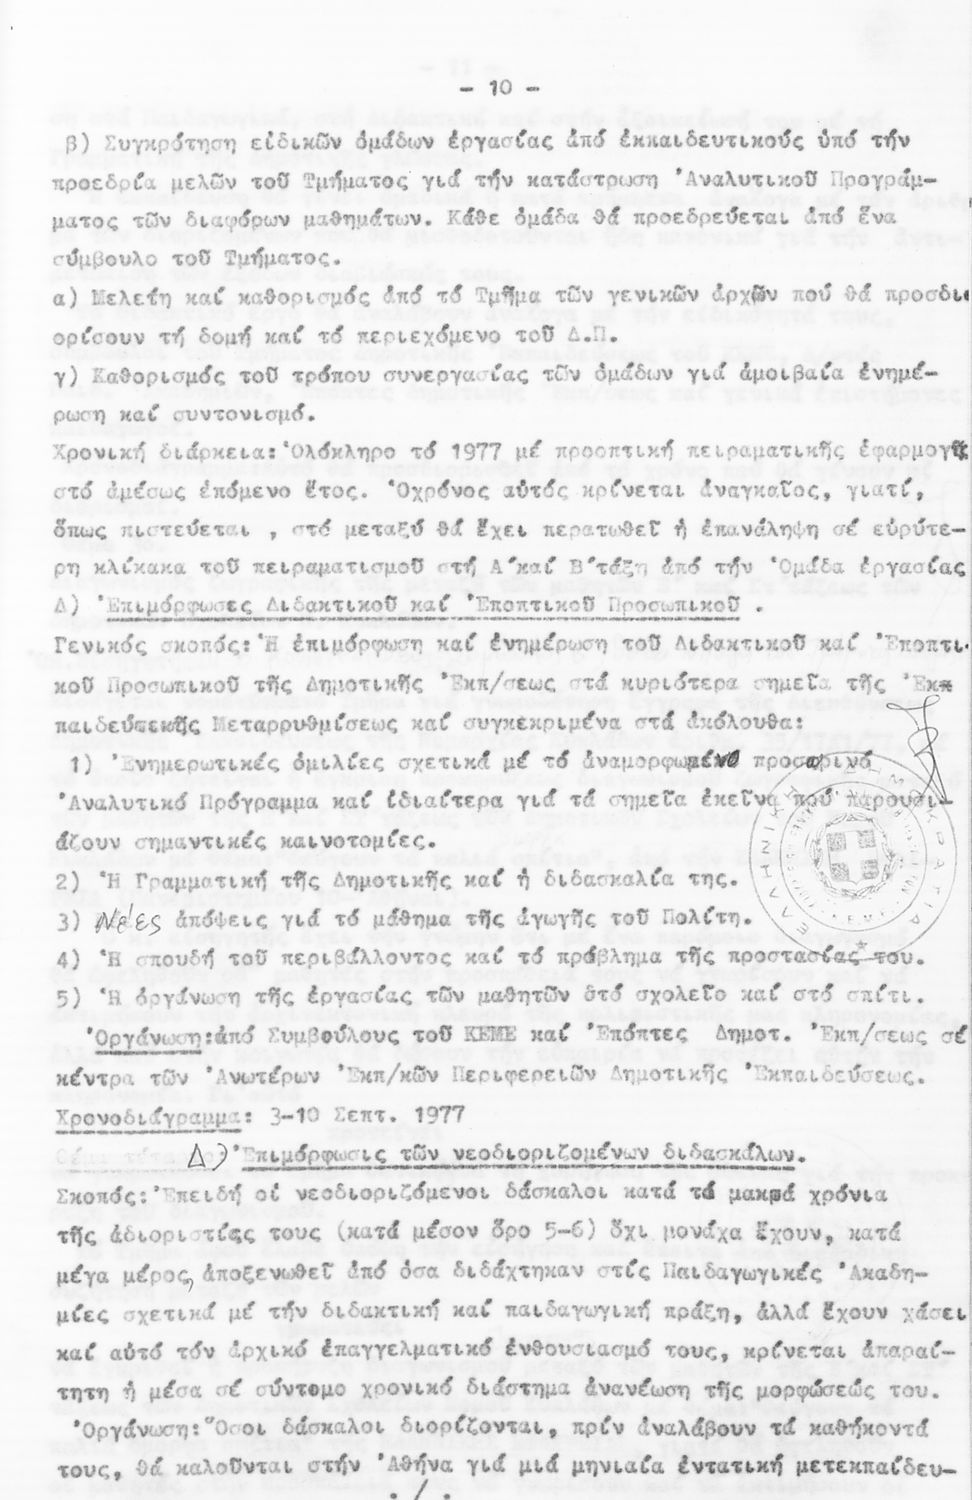 - 10 -
β) Συγκρότηση εἰδικῶν ὁμάδων ἐργασίας ἀπό ἐκπαιδευτικούς ὑπό τήν
προεδρία μελῶν τοῦ Τμήματος γιά τήν κατάστρωση Ἀναλυτικοῦ Προγράμ-
ματος τῶν διαφόρων μαθημάτων. Κάθε ὁμάδα θά προεδρεύεται ἀπό ἕνα
σύμβουλο τοῦ Τμήματος.
α) Μελέτη καί καθορισμός ἀπό τό Τμῆμα τῶν γενικῶν ἀρχῶν πού θά προσδι
ορίσουν τή δομή καί τό περιεχόμενο τοῦ Δ.Π.
γ) Καθορισμός τοῦ τρόπου συνεργασίας τῶν ὁμάδων γιά ἀμοιβαία ἐνημέ-
ρωση καί συντονισμό.
Χρονική διάρκεια: Ὁλόκληρο τό 1977 μέ προοπτική πειραματικῆς ἐφαρμογῆς
στό ἀμέσως ἑπόμενο ἔτος. Ὁχρόνος αὐτός κρίνεται ἀναγκαῖος, γιατί,
ὅπως πιστεύεται , στό μεταξύ θά ἔχει περατωθεῖ ἡ ἐπανάληψη σέ εὐρύτε-
ρη κλίκακα τοῦ πειραματισμοῦ στή Α΄καί Β΄τάξη ἀπό τήν Ὁμάδα ἐργασίας
Δ) Ἐπιμόρφωσες Διδακτικοῦ καί Ἐποπτικοῦ Προσωπικοῦ .
Γενικός σκοπός: Ἡ ἐπιμόρφωση καί ἐνημέρωση τοῦ Διδακτικοῦ καί Ἐποπτι-
κοῦ Προσωπικοῦ τῆς Δημοτικῆς Ἐκπ/σεως στά κυριότερα σημεῖα τῆς Ἐκ
παιδευτικῆς Μεταρρυθμίσεως καί συγκεκριμένα στά ἀκόλουθα:
1) Ἐνημερωτικές ὁμιλίες σχετικά μέ τό ἀναμορφωμένο προσωρινό
Ἀναλυτικό Πρόγραμμα καί ἰδιαίτερα γιά τά σημεῖα ἐκεῖνα πού παρουσι-
άζουν σημαντικές καινοτομίες.
2) Ἡ Γραμματική τῆς Δημοτικῆς καί ἡ διδασκαλία της.
3) Νέες ἀπόψεις γιά τό μάθημα τῆς ἀγωγῆς τοῦ Πολίτη.
4) Ἡ σπουδή τοῦ περιβάλλοντος καί τό πρόβλημα τῆς προστασίας του.
5) Ἡ ὀργάνωση τῆς ἐργασίας τῶν μαθητῶν στό σχολεῖο καί στό σπίτι.
Ὀργάνωση:ἀπό Συμβούλους τοῦ ΚΕΜΕ καί Ἐπόπτες Δημοτ. Ἐκπ/σεως σέ
κέντρα τῶν Ἀνωτέρων Ἐκπ/κῶν Περιφερειῶν Δημοτικῆς Ἐκπαιδεύσεως.
Χρονοδιάγραμμα: 3-10 Σεπτ. 1977
Δ) Ἐπιμόρφωσις τῶν νεοδιοριζομένων διδασκάλων.
Σκοπός: Ἐπειδή οἱ νεοδιοριζόμενοι δάσκαλοι κατά τά μακρά χρόνια
τῆς ἀδιοριστίας τους (κατά μέσον ὅρο 5-6) ὄχι μονάχα ἔχουν, κατά
μέγα μέρος, ἀποξενωθεῖ ἀπό ὅσα διδάχτηκαν στίς Παιδαγωγικές Ἀκαδη-
μίες σχετικά μέ τήν διδακτική καί παιδαγωγική πράξη, ἀλλά ἔχουν χάσει
καί αὐτό τόν ἀρχικό ἐπαγγελματικό ἐνθουσιασμό τους, κρίνεται ἀπαραί-
τητη ἡ μέσα σέ σύντομο χρονικό διάστημα ἀνανέωση τῆς μορφώσεώς του.
Ὀργάνωση: Ὅσοι δάσκαλοι διορίζονται, πρίν ἀναλάβουν τά καθήκοντά
τους, θά καλοῦνται στήν Ἀθήνα γιά μιά μηνιαία ἐντατική μετεκπαίδευ-
./.
ΕΛΛΗΝΙΚΗ ΔΗΜΟΚΡΑΤΙΑ